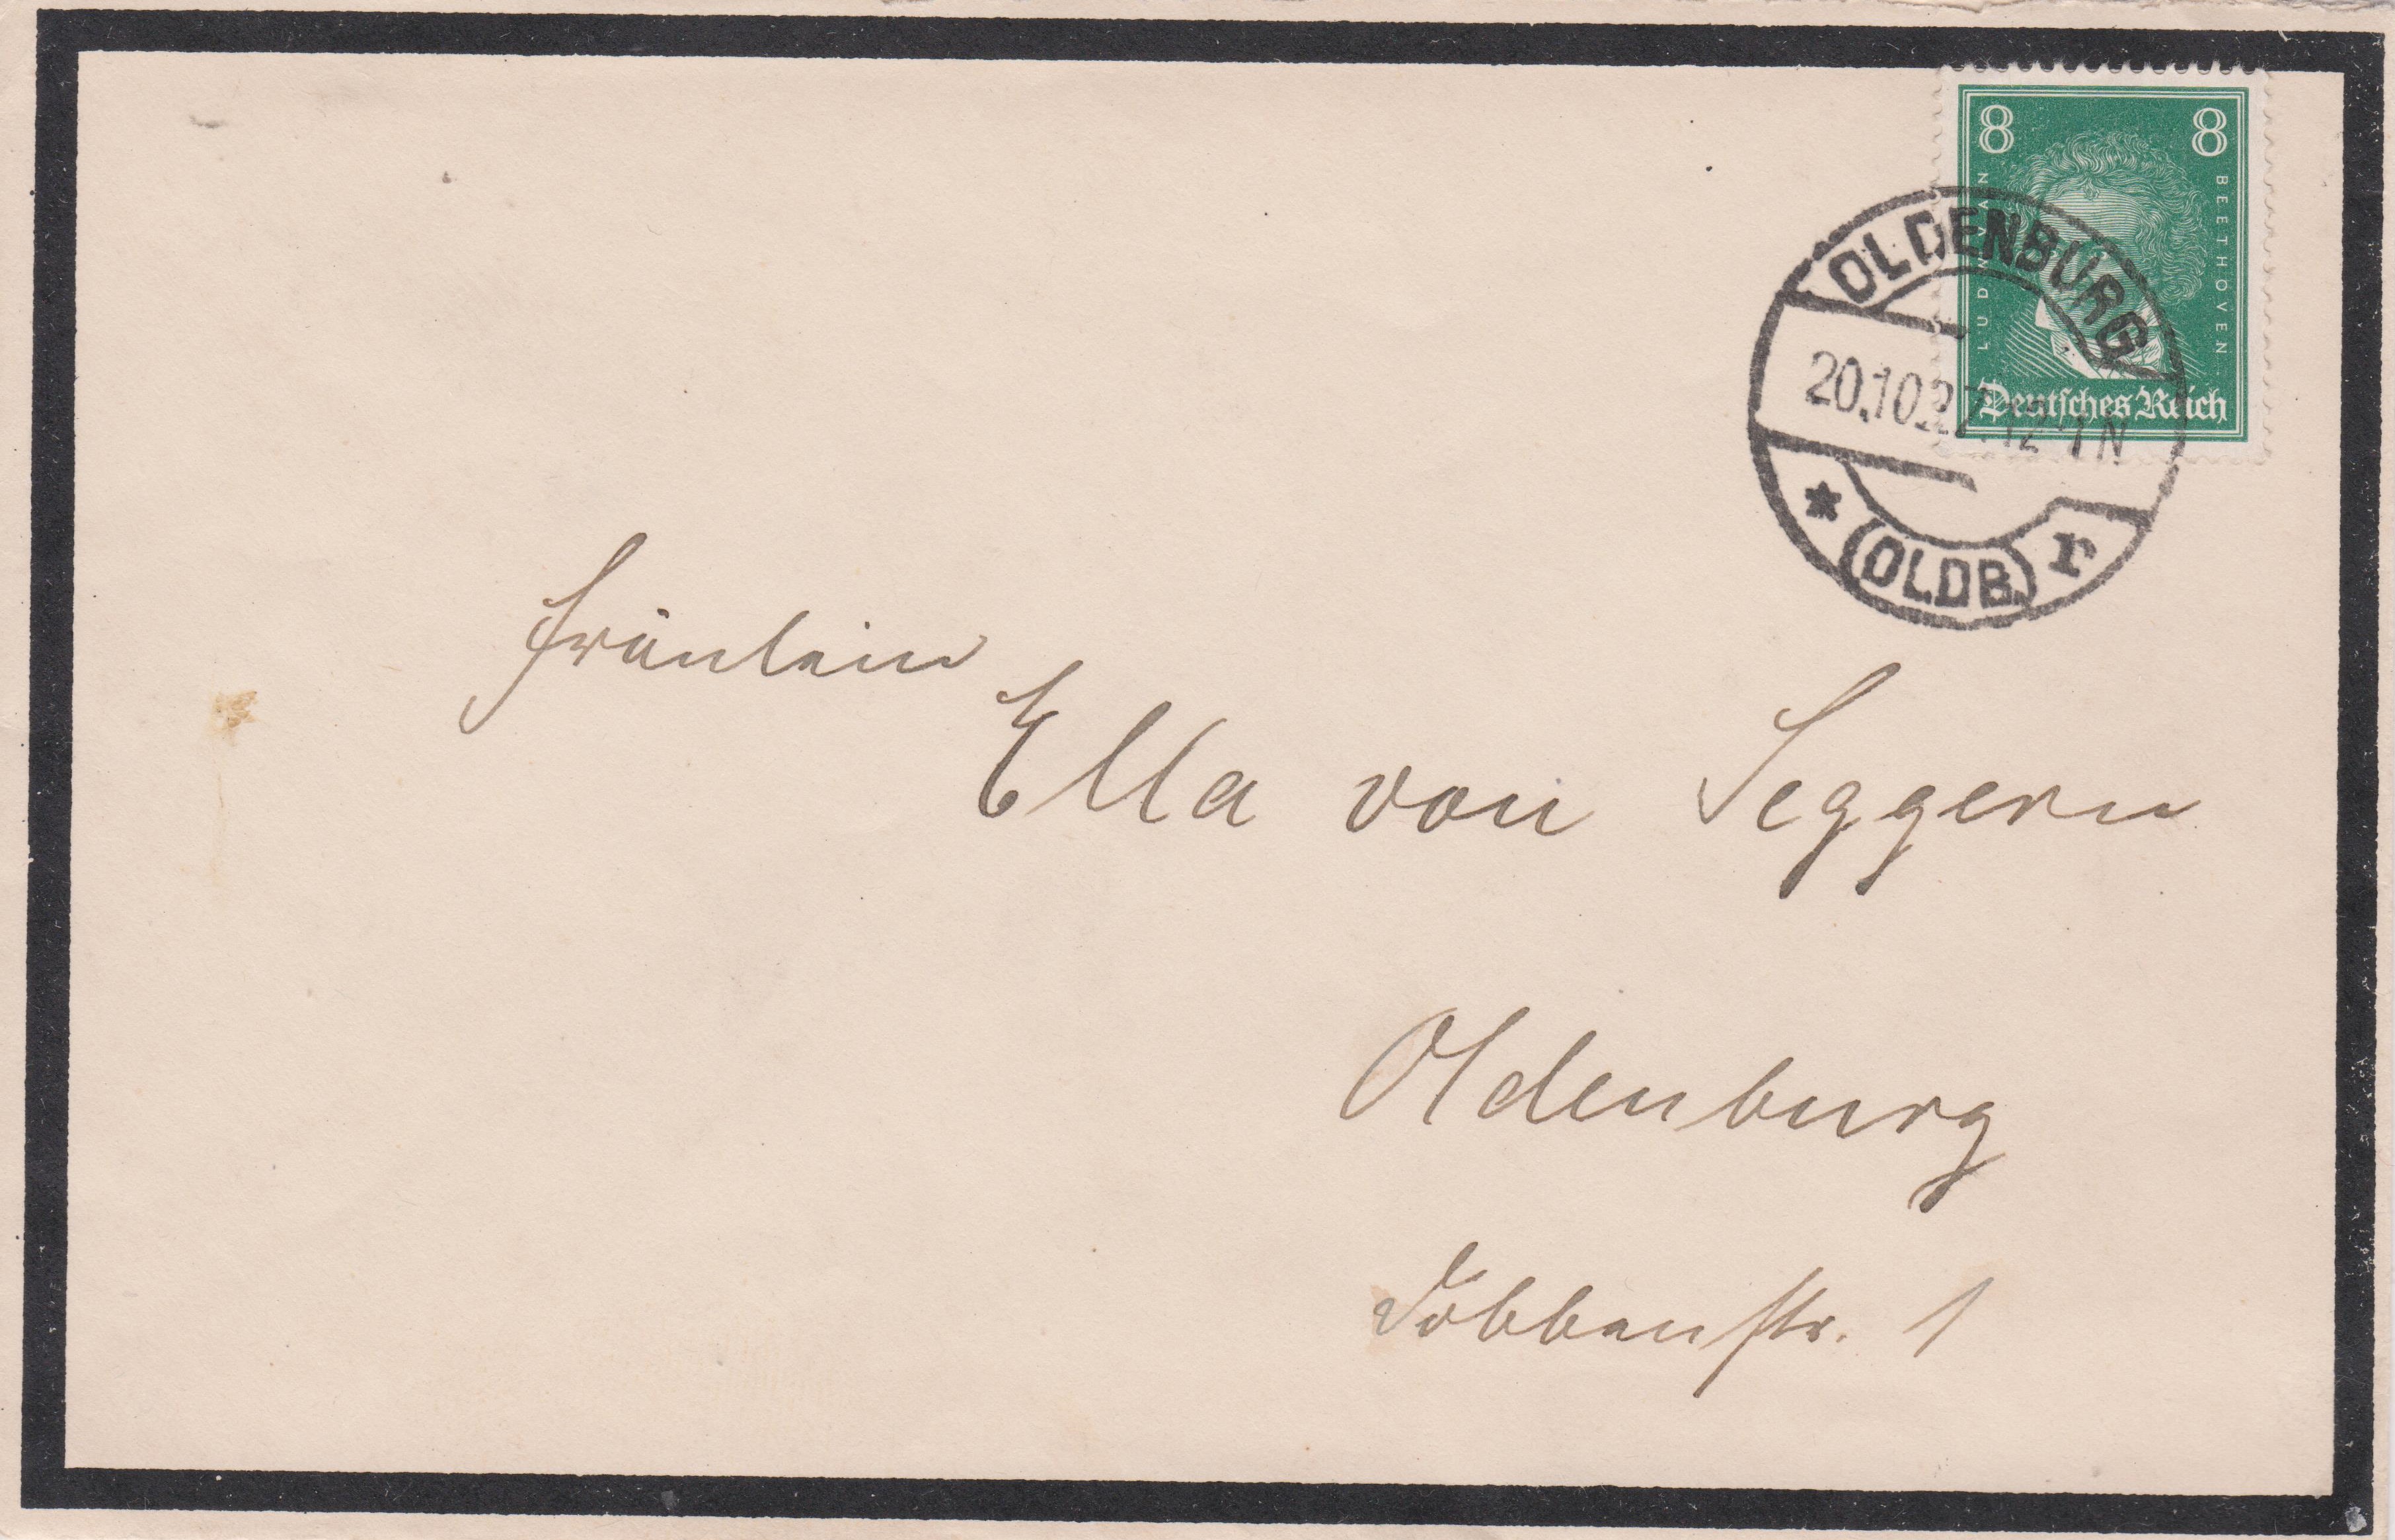 8 8
LUDWIG VAN
BEETHOVEN
Deutsches Reich
OLDENBURG
20.10.27.12-1N
* (OLDB.) r
Fräulein
Ella von Seggern
Oldenburg
Dobbenstr. 1